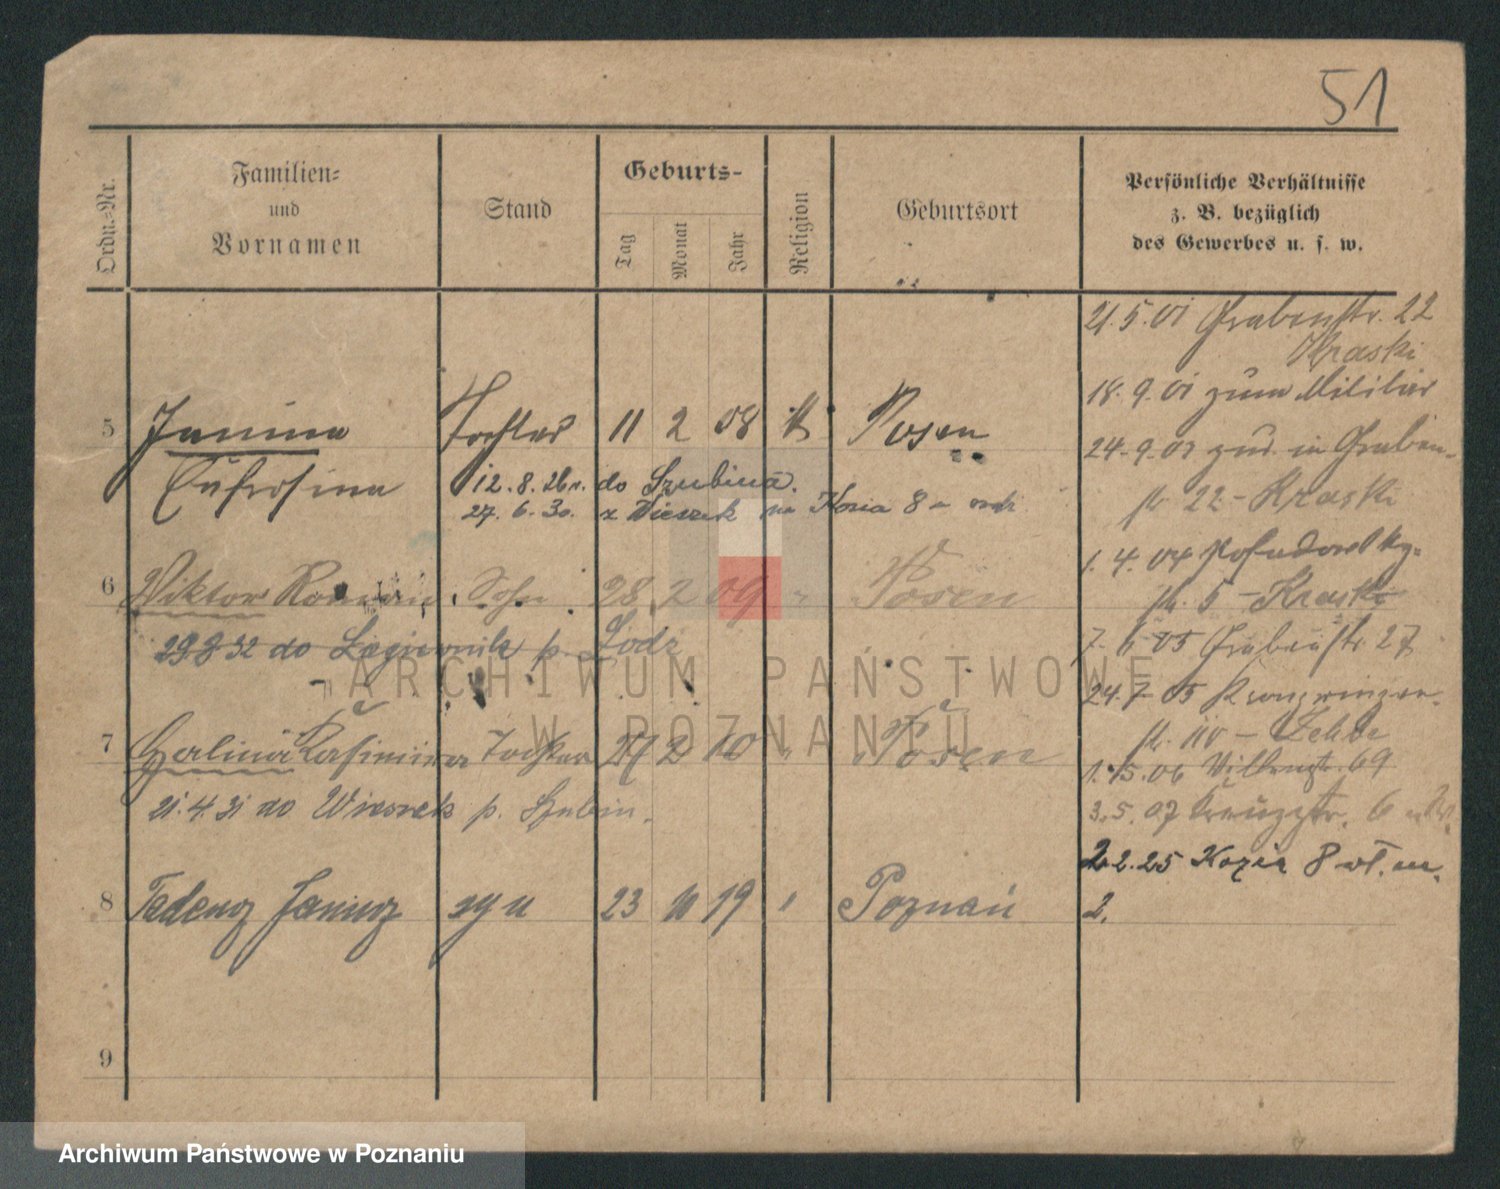 51
Ordn.-Nr.
Familien-
und
Vornamen
Stand
Geburts-
Tag
Monat
Jahr
Religion
Geburtsort
Persönliche Verhältnisse
z. B. bezüglich
des Gewerbes u. s. w.
21.5.01 Grabenstr. 22
Kraski
18.9.01 zum Militär
5 Janina Tochter 11 2 08 k Posen
24.9.03 zur. in Graben-
Eufrosina
12.8.26 r. do Szubina.
str 22 - Kraski
27.6.30. z Wieszek na Kozia 8
1.4.04
6 Wiktor Roman Sohn 28 2 09 " Posen
str. 5 - Kraski
29 8 32 do Łagiewnik p. Łódź
7. 6 05 Grabenstr 27
ARCHIWUM PAŃSTWOWE
W POZNANIU
24.7 05 Kronprinzen-
str. 110 -
7 Halina Kasimira Tochter 27 2 10 " Posen
1.5.06 69
21.4.31 do Wieszek p. Szubin.
3.5.07 Kreuzstr. 6
2.2.25 Kozia 8 wł. m.
8 Tadeusz Janusz syn 23 10 19 " Poznań
2.
9
Archiwum Państwowe w Poznaniu